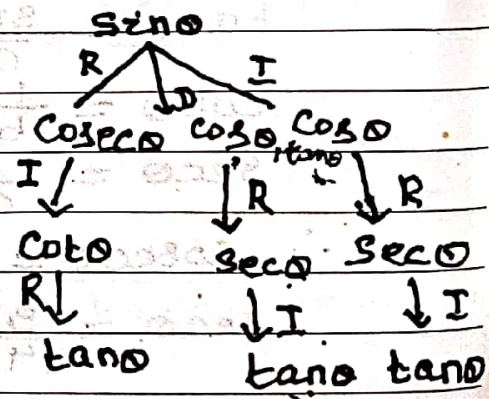 sinθ
R D I
Cosecθ cosθ cosθ
, tanθ
I R R
Cotθ secθ secθ
R I I
tanθ tanθ tanθ